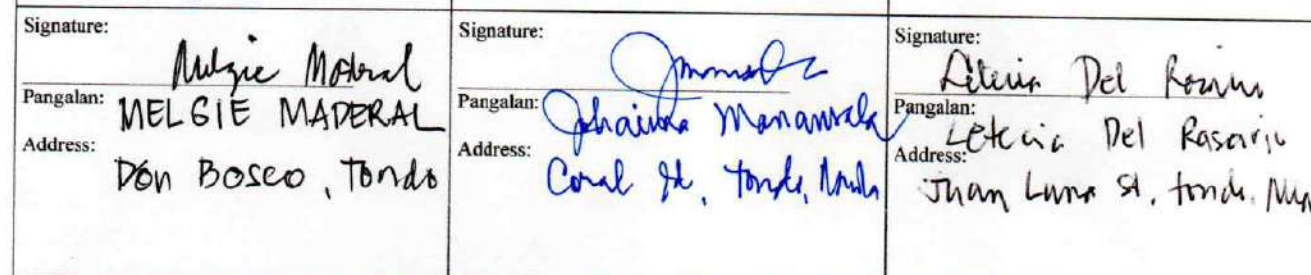 Signature:
Melgie Maderal
Pangalan: MELGIE MADERAL
Address:
Don Bosco, Tondo
Signature:
Pangalan: Johainna Manansala
Address: Coral St, Tondo, Manila
Signature:
Letecia Del Rosario
Pangalan:
Letecia Del Rosario
Address:
Juan Luna St, Tondo,